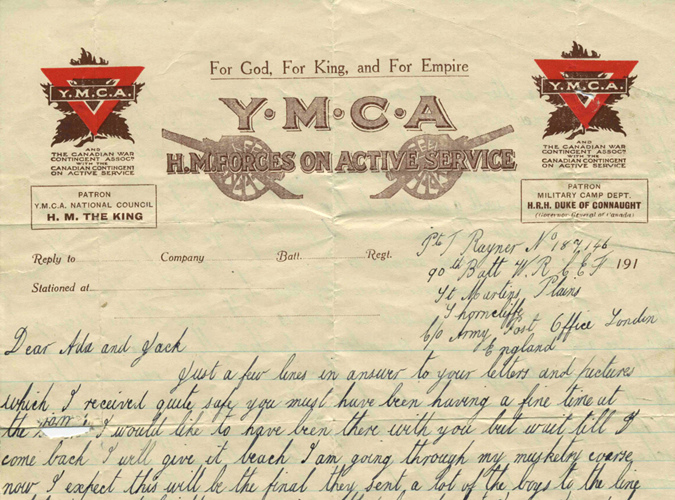 For God, For King, and For Empire
Y·M·C·A
H.M. FORCES ON ACTIVE SERVICE
Y.M.C.A.
AND
THE CANADIAN WAR
CONTINGENT ASSOCN
WITH THE
CANADIAN CONTINGENT
ON ACTIVE SERVICE
PATRON
Y.M.C.A. NATIONAL COUNCIL
H. M. THE KING
Y.M.C.A.
AND
THE CANADIAN WAR
CONTINGENT ASSOCN
WITH THE
CANADIAN CONTINGENT
ON ACTIVE SERVICE
PATRON
MILITARY CAMP DEPT.
H.R.H. DUKE OF CONNAUGHT
(Governor General of Canada)
Reply to Company Batt. Regt. 191
Stationed at
Pte T Rayner No 187146
90th Batt W. R C E F
St Martins Plains
Thorncliffe
C/o Army Post Office London
England
Dear Ada and Jack
Just a few lines in answer to your letters and pictures
which I received quite safe you must have been having a fine time at
the I would like to have been there with you but wait till I
come back I will give it beach I am going through my muskelry course
now I expect this will be the final they sent a lot of the boys to the line